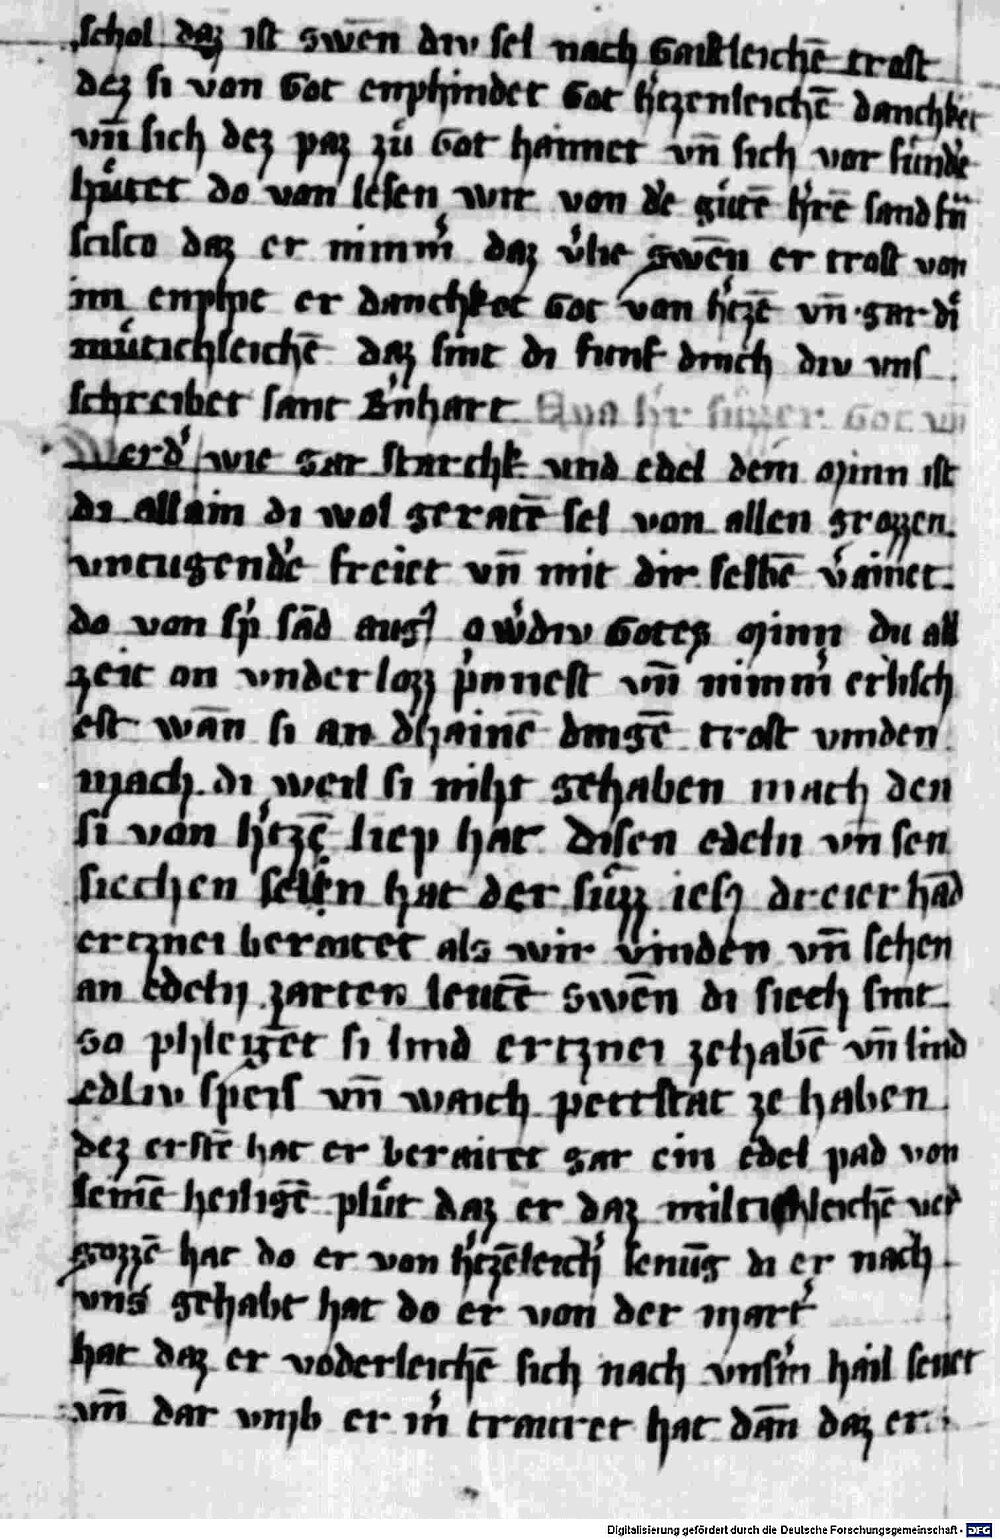 schol daz ist swēn div sel nach gaistleichē trost
dez si von Got enphindet Got h͛tzenleichē danchbet
vn̄ sich dez paz zů Got haimet vn̄ sich vor sünd͛e
hůtet do von lesen wir von d͛e gůtē h͛rē sand frā
scisco daz er nimm͛ daz v͛lie swēn er trost von
im enphie er danchkot Got von h͛tzē vn̄ gar di
můtichleichē daz sint di funf dinch div uns
schreibet sant B͛nhart Aya h͛r süzzer got vn̄
Werd͛ wie gar starchk und edel dein minn ist
di allain di wol geratē sel von allen grozzen
untugend͛e freiet vn̄ mit dir selbē v͛ainet
do von sp͛ sād aug͛ owe div Gotes minn du all
zeit on underlozz p͛nnest vn̄ nimm͛ erlisch
est wān si an dhainē dingē trost vinden
mach di weil si niht gehaben mach den
si von h͛tzē liep hat Disen edeln vn̄ sen
siechen seln hat der süzz iesus dreier hād
ertznei beraitet als wir vinden vn̄ sehen
an edeln zarten leutē swēn di siech sint
so phlegēt si lind ertznei zehabē vn̄ lind
edliv speis vn̄ waich pettstat ze haben
dez erstē hat er beraitet gar ein edel pad von
seinē heiligē plůt daz er daz miltichleichē ver
gozzē hat do er von h͛tzēleich͛ senūg di er nach
uns gehabt hat do er von der mart͛
hat daz er voderleichē sich nach uns͛m hail senet
vn̄ dar umb er m͛ trauret hat dān daz er